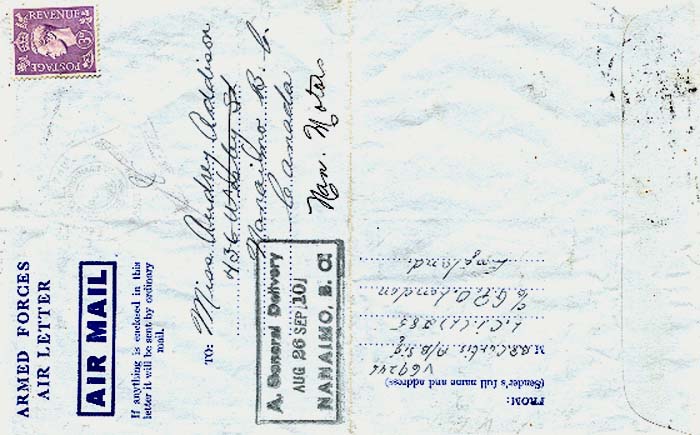 POSTAGE
REVENUE
3D
ARMED FORCES
AIR LETTER
AIR MAIL
If anything is enclosed in this
letter it will be sent by ordinary
mail.
TO:
Miss Audrey Addison
Nanaimo B.C.
Canada
Nan. Motors
A. General Delivery
AUG 26 SEP 10
NANAIMO, B. C.
FROM:
(Sender's full name and address)
V69245
M.B.R. Curtis A/B Sig
L.C.I.(L) 285
℅ G.P.O. London
England